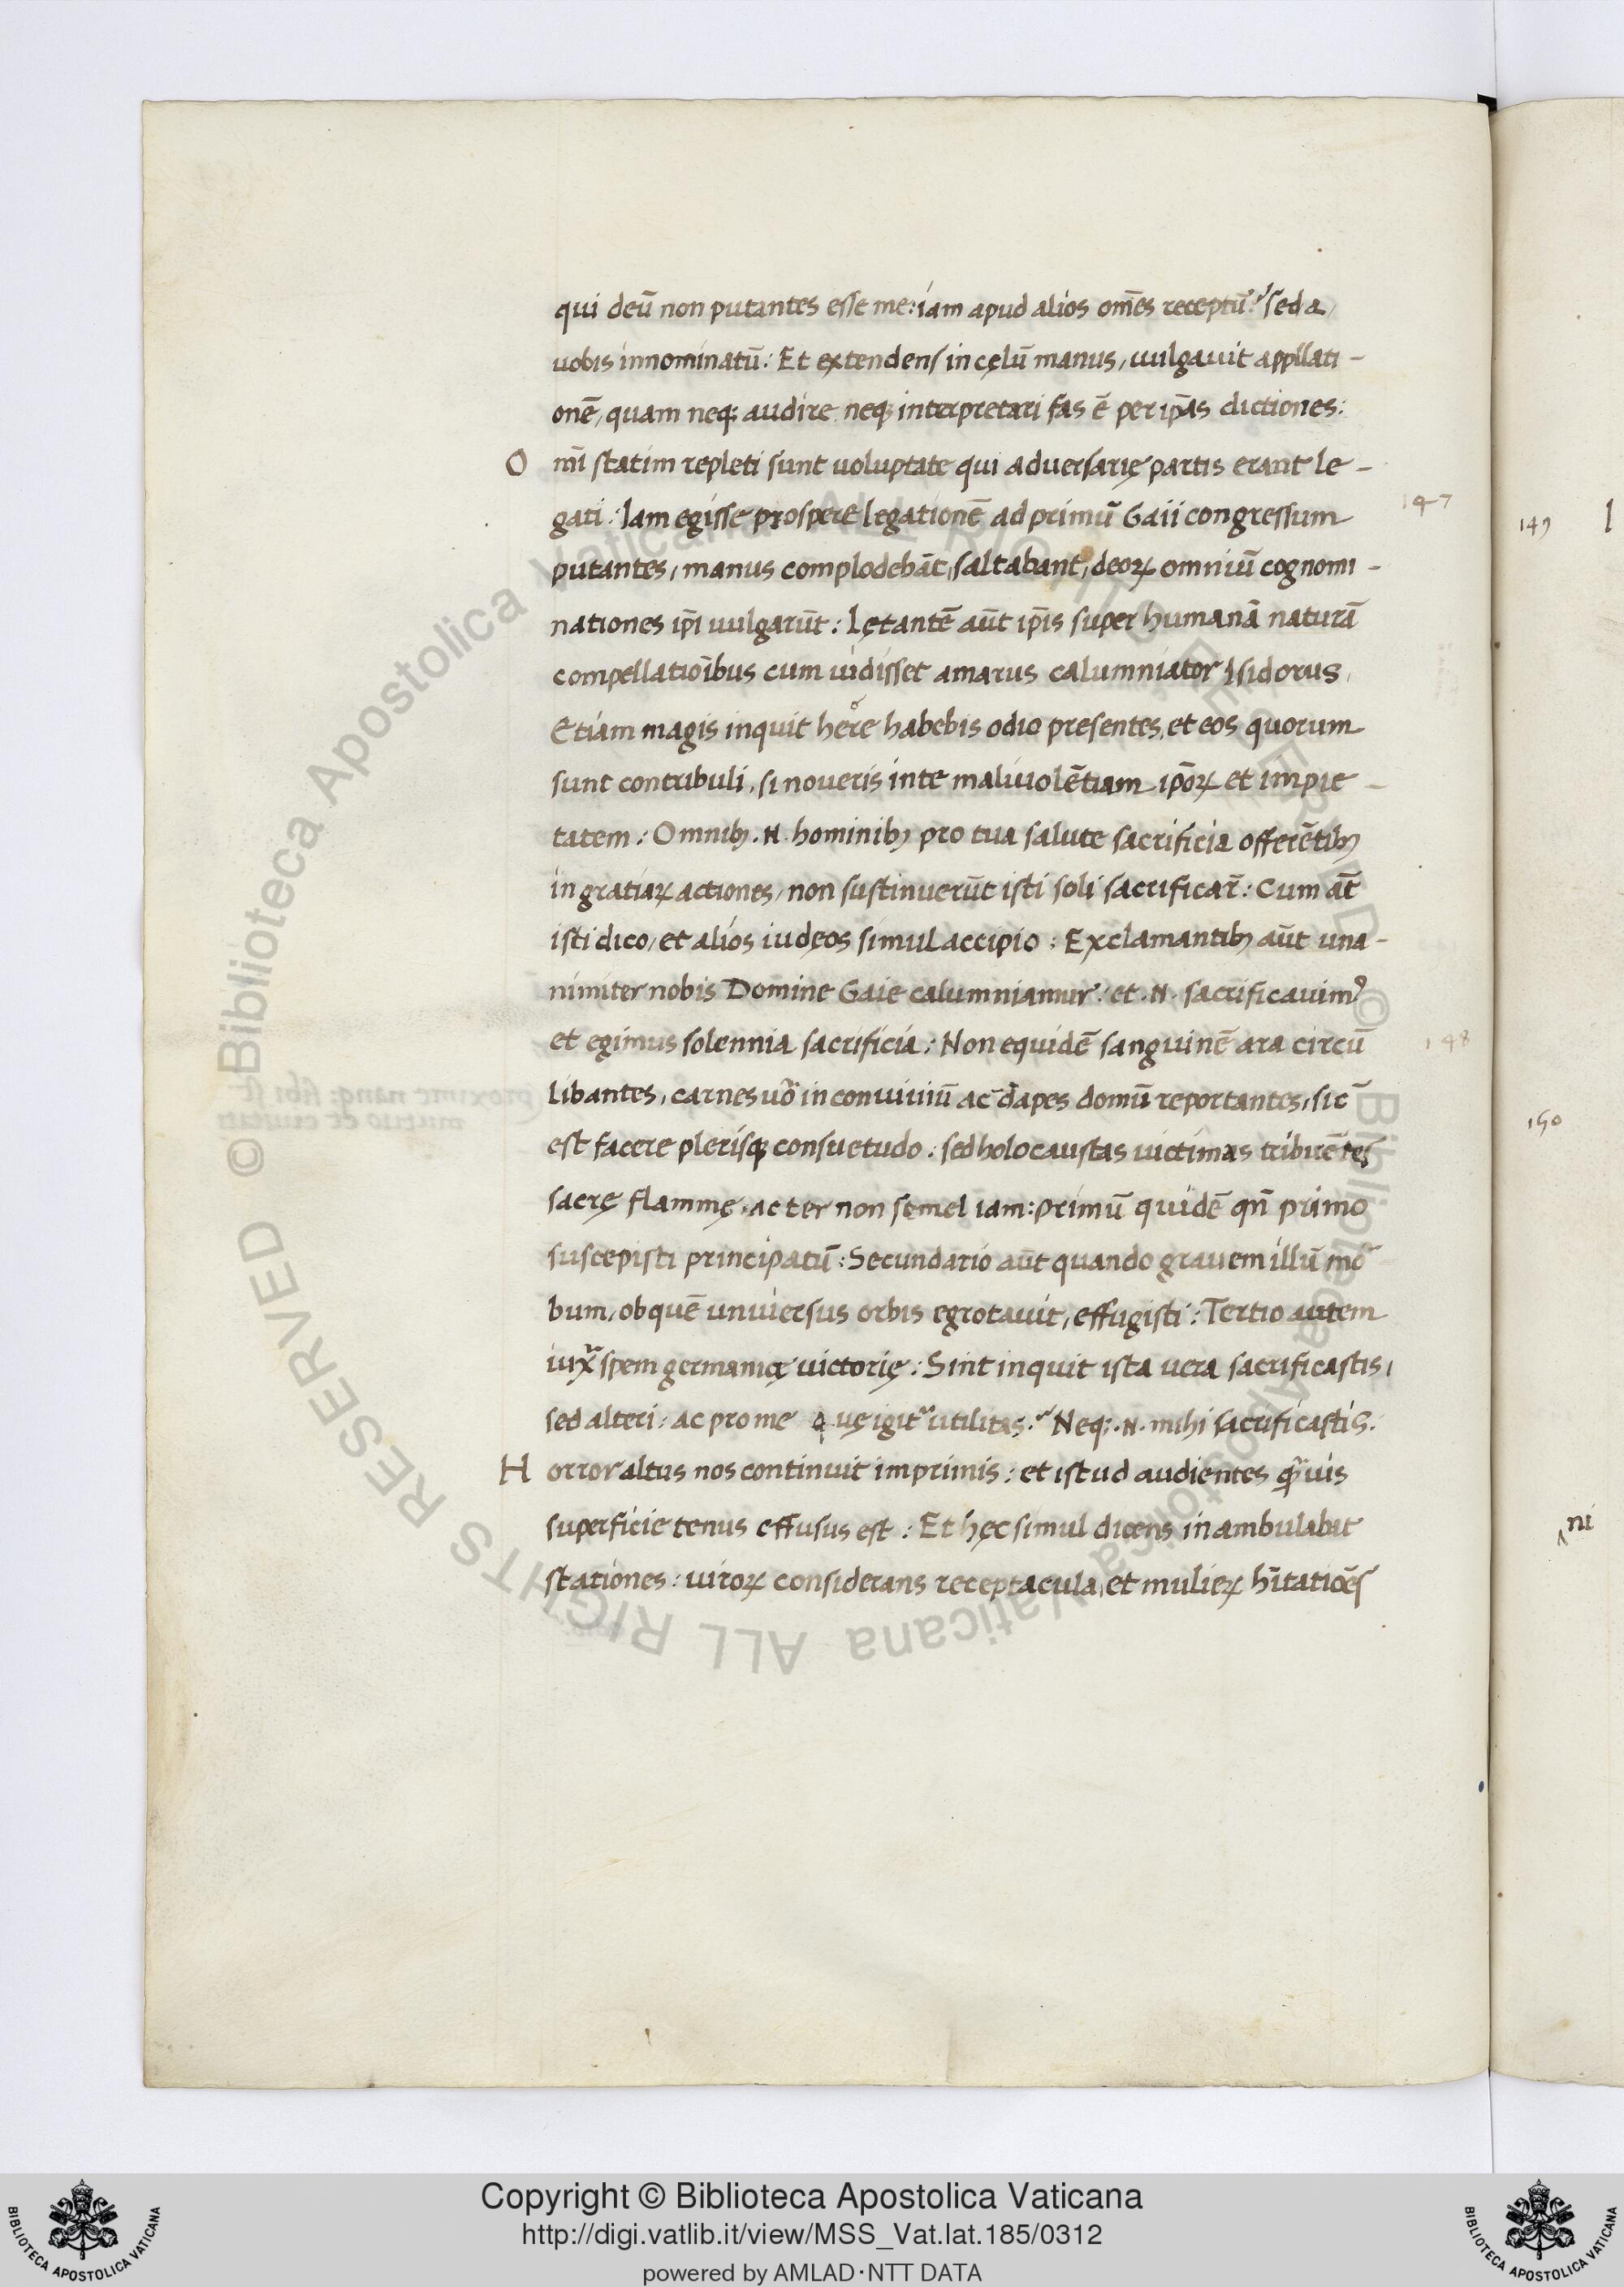 qui deū non putantes esse me: iam apud alios om̄es receptū? sed a
vobis innominatū: Et extendens in cęlū manus, vulgavit appllati-
onē, quam neq; audire neq; interpretari fas ē per ip̄as dictiones:
O mī statim repleti sunt voluptate qui adversarię partis erant le-
gati: Iam egisse prospere legationē ad primū Gaii congressum
147
putantes, manus complodebāt, saltabant, deoꝝ omniū cognomi-
nationes ip̄i vulgarūt: Lętantē aūt ip̄is super humanā naturā
compellatiōibus cum vidisset amarus calumniator Isidorus,
Etiam magis inquit here habebis odio presentes, et eos quorum
sunt contribuli, si noveris in te malivolētiam ip̄oꝝ et impie-
tatem: Omnibꝫ .N. hominibꝫ pro tua salute sacrificia offerētibꝫ
in gratiaꝝ actiones, non sustinuerūt isti soli sacrificar̄: Cum aūt
isti dico, et alios iudęos simul accipio: Exclamantibꝫ aūt una-
nimiter nobis Domine Gaie calumniamur: et .N. sacrificavimꝰ
et egimus solennia sacrificia: Non equidē sanguinē ara circū
148
libantes, carnes vō in conviviū ac dapes domū reportantes, sic̄
est facere plerisqꝫ consuetudo: sed holocaustas victimas tribuētes
sacrę flammę, ac ter non semel iam: primū quidē qn̄ primo
suscepisti principatū: Secundario aūt quando gravem illū mō
bum, ob quē universus orbis egrotavit, effugisti: Tertio autem
iuxͣ spem germanicę victorię: Sint inquit ista vera sacrificastis,
sed alteri: ac pro me Quę igit᷑ utilitas? Neq; .N. mihi sacrificastis.
H orror altus nos continuit imprimis: et istud audientes quāvis
superficie tenus effusus est: Et hęc simul dicens inambulabat
stationes: viroꝝ considerans receptacula, et mulieꝝ hītatiōes
149
150
ni
Copyright © Biblioteca Apostolica Vaticana
http://digi.vatlib.it/view/MSS_Vat.lat.185/0312
powered by AMLAD·NTT DATA
BIBLIOTECA APOSTOLICA VATICANA
BIBLIOTECA APOSTOLICA VATICANA
© Biblioteca Apostolica Vaticana ALL RIGHTS RESERVED
© Biblioteca Apostolica Vaticana ALL RIGHTS RESERVED